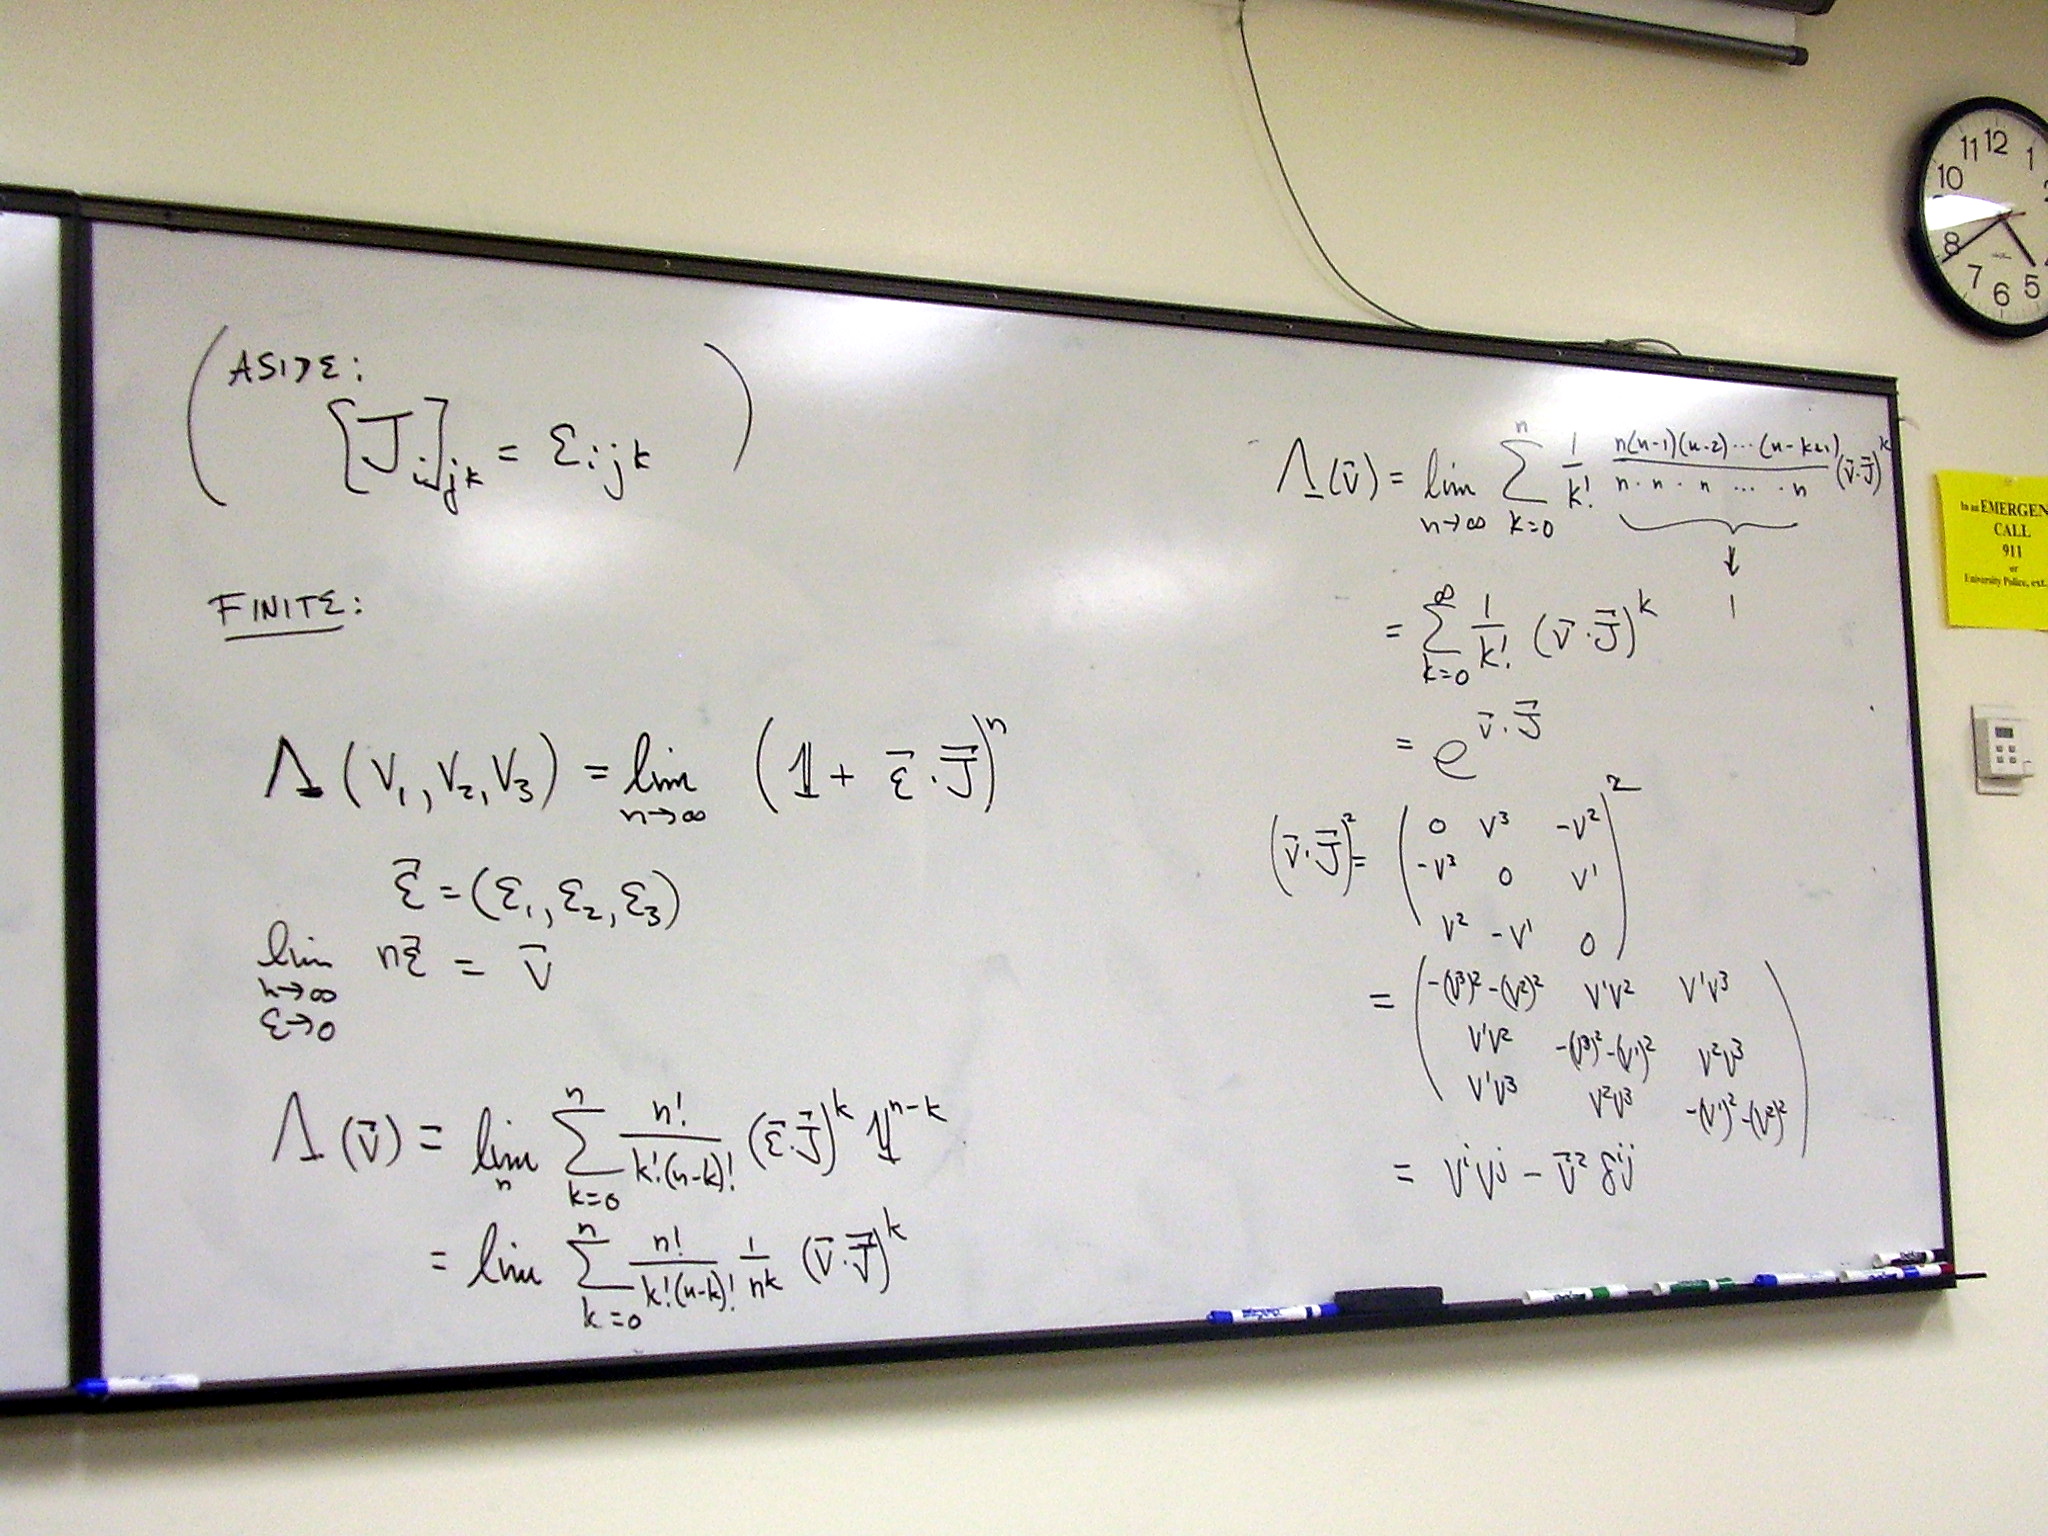 ( ASIDE: )
[J_i]_jk = ε_ijk
FINITE:
Λ(V₁, V₂, V₃) = lim_{n→∞} (𝟙 + ε⃗·J⃗)ⁿ
ε⃗ = (ε₁, ε₂, ε₃)
lim_{n→∞, ε→0} nε⃗ = v⃗
Λ(v⃗) = lim_n Σ_{k=0}^{n} n!/(k!(n-k)!) (ε⃗·J⃗)^k 𝟙^{n-k}
= lim Σ_{k=0}^{n} n!/(k!(n-k)!) 1/n^k (v⃗·J⃗)^k
Λ(v⃗) = lim_{n→∞} Σ_{k=0}^{n} 1/k! n(n-1)(n-2)···(n-k+1)/(n·n·n ··· ·n) (v⃗·J⃗)^k
↓
1
= Σ_{k=0}^{∞} 1/k! (v⃗·J⃗)^k
= e^{v⃗·J⃗}
(v⃗·J⃗)² = ( 0 v³ -v²
-v³ 0 v¹
v² -v¹ 0 )²
= ( -(v³)²-(v²)² v¹v² v¹v³
v¹v² -(v³)²-(v¹)² v²v³
v¹v³ v²v³ -(v¹)²-(v²)² )
= vⁱvʲ - v⃗² δⁱʲ
11 12 1
10
8
7 6 5
In an EMERGEN
CALL
911
or
University Police, ext.